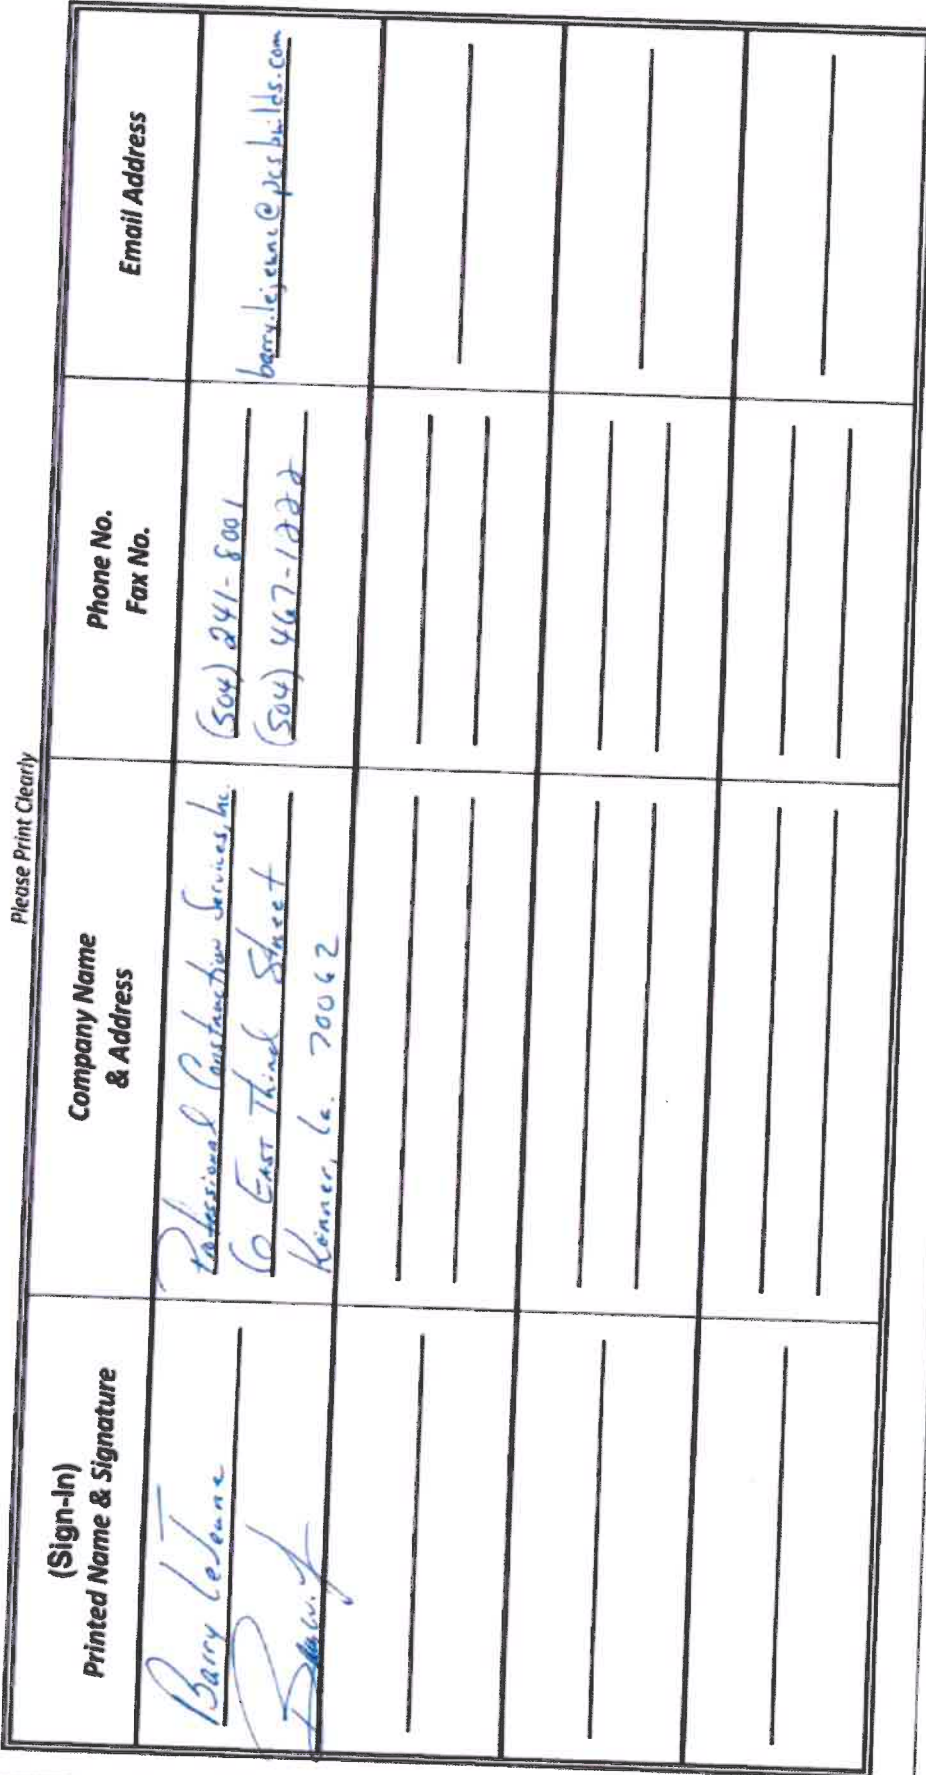 Please Print Clearly
(Sign-In)
Printed Name & Signature
Company Name
& Address
Phone No.
Fax No.
Email Address
Barry LeJeune
Professional Construction Services, Inc.
60 East Third Street
Kenner, La. 70062
(504) 241-8001
(504) 467-1222
barry.lejeune@pcsbuilds.com